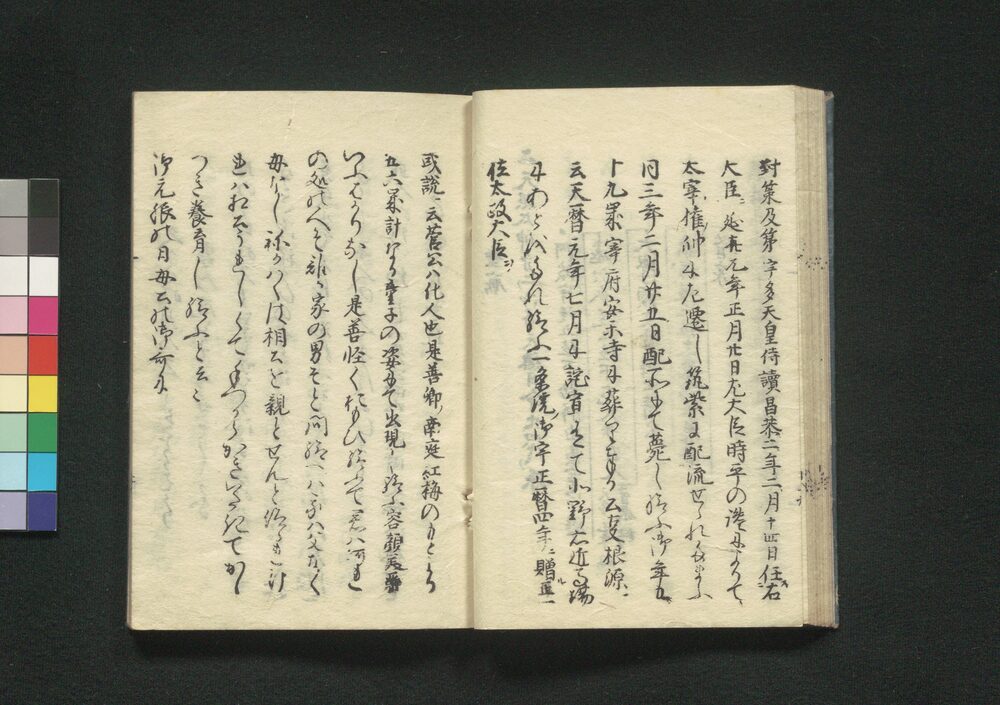 對策及第宇多天皇侍讀昌泰二年二月十四日任右
大臣延喜元年正月廿日左大臣時平の讒によりて
太宰權帥に左遷し筑紫に配流せられたまふ
同三年二月廿五日配所にて薨し給ふ御年五
十九歳宰府安樂寺に葬 公事根源ニ
云天暦元年七月に託宣 て北野右近馬場
にあらはれ給ふ一条院御宇正暦四年ニ贈正一
位太政大臣
或説ニ云菅公ハ化人也是善卿ノ南庭紅梅のもとより
五六歳計なる童子の姿にて出現し給ふ容顔美麗
いふはかりなし是善怪くおもひ給ふて君ハ何れ
の処の人そ誰か家の男そと問給へハ我ハ父なく
母なしねかハくは相公を親とせんと
かきいたきてかし
つき養育し給ふと云々
御元服の日母公の御